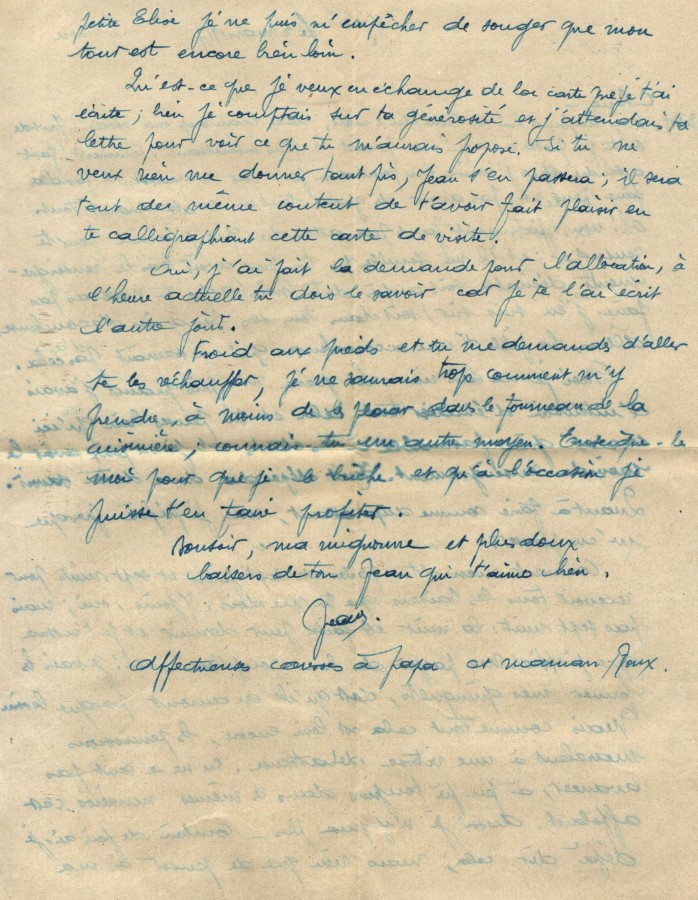 petite Elise je ne puis m'empêcher de songer que mon
tour est encore bien loin.
Qu'est-ce que je veux en échange de la carte que je t'ai
écrite ; bien je comptais sur ta générosité et j'attendais ta
lettre pour voir ce que tu m'aurais proposé. Si tu ne
veux rien me donner tant pis, Jean s'en passera ; il sera
tout de même content de t'avoir fait plaisir en
te calligraphiant cette carte de visite.
Oui, j'ai fait la demande pour l'allocation, à
l'heure actuelle tu dois le savoir car je te l'ai écrit
l'autre jour.
Froid aux pieds et tu me demandes d'aller
te les réchauffer, je ne saurais trop comment m'y
prendre, à moins de les placer dans le fourneau de la
cuisinière ; connais tu un autre moyen. Enseigne-le
moi pour que je le et qu'à l'occasion je
puisse t'en faire profiter.
Bonsoir, ma mignonne et plus doux
baisers de ton Jean qui t'aime bien.
Jean.
Affectueuses caresses à papa et maman